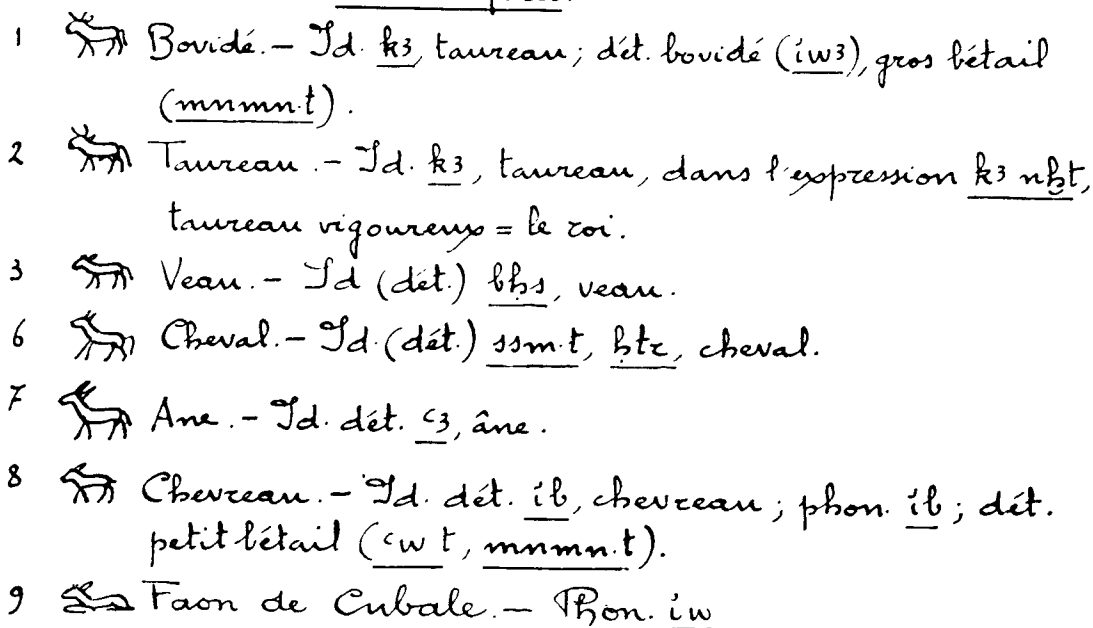 1 𓃒 Bovidé. – Id. k3, taureau; dét. bovidé (iw3), gros bétail
(mnmn.t).
2 𓃒 Taureau. – Id. k3, taureau, dans l'expression k3 nḫt,
taureau vigoureux = le roi.
3 𓃔 Veau. – Id (dét.) bḥs, veau.
6 𓃗 Cheval. – Id. (dét.) ssm.t, ḥtr, cheval.
7 𓃘 Ane. – Id. dét. ꜥ3, âne.
8 𓃙 Chevreau. – Id. dét. ib, chevreau; phon. ib; dét.
petit bétail (ꜥw t, mnmn.t).
9 𓃛 Faon de Cubale. – Phon. iw